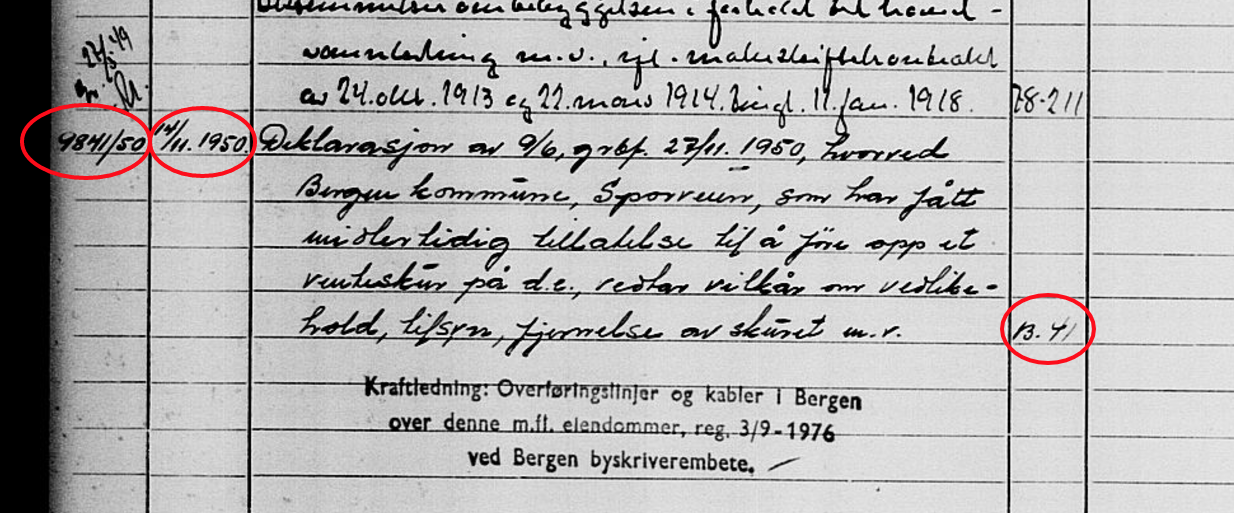 bestemmelser om bebyggelsen i forhold til hoved-
27/5-49
vannledning m.v., igl. makeskiftekontrakt
av 24. okt. 1913 og 22. mars 1914. Tingl. 11. jan. 1918. 28-211
9841/50 14/11. 1950. Deklarasjon av 9/6, grbf. 27/11. 1950, hvorved
Bergen kommune, Sporveien, som har fått
midlertidig tillatelse til å føre opp et
venteskur på d.e., vedtar vilkår om vedlike-
hold, tilsyn, fjernelse av skuret m.v. B. 41
Kraftledning: Overføringslinjer og kabler i Bergen
over denne m.fl. eiendommer, reg. 3/9-1976
ved Bergen byskriverembete.